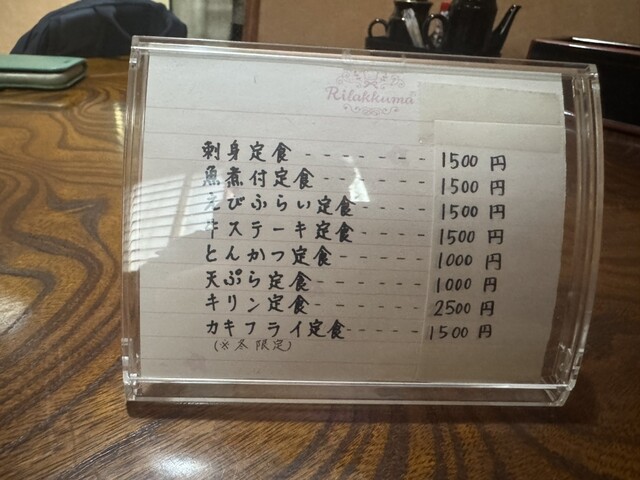 Rilakkuma
刺身定食 - - - - - - - 1500 円
魚煮付定食 - - - - - - 1500 円
えびふらい定食 - - - - 1500 円
牛ステーキ定食 - - - - 1500 円
とんかつ定食 - - - - - 1000 円
天ぷら定食 - - - - - - 1000 円
キリン定食 - - - - - - 2500 円
カキフライ定食 - - - - - 1500 円
(※冬限定)